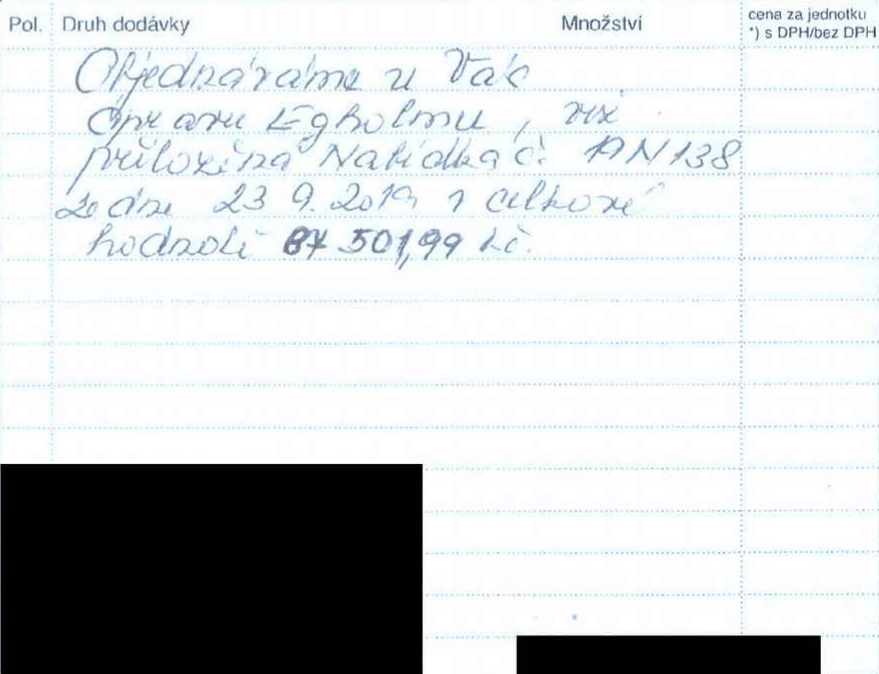 Pol. Druh dodávky Množství cena za jednotku
*) s DPH/bez DPH
Objednáváme u Vás
opravu Egholmu, viz
přiložená Nabídka č. AN138
ze dne 23 9. 2019 v celkové
hodnotě 87 501,99 Kč.